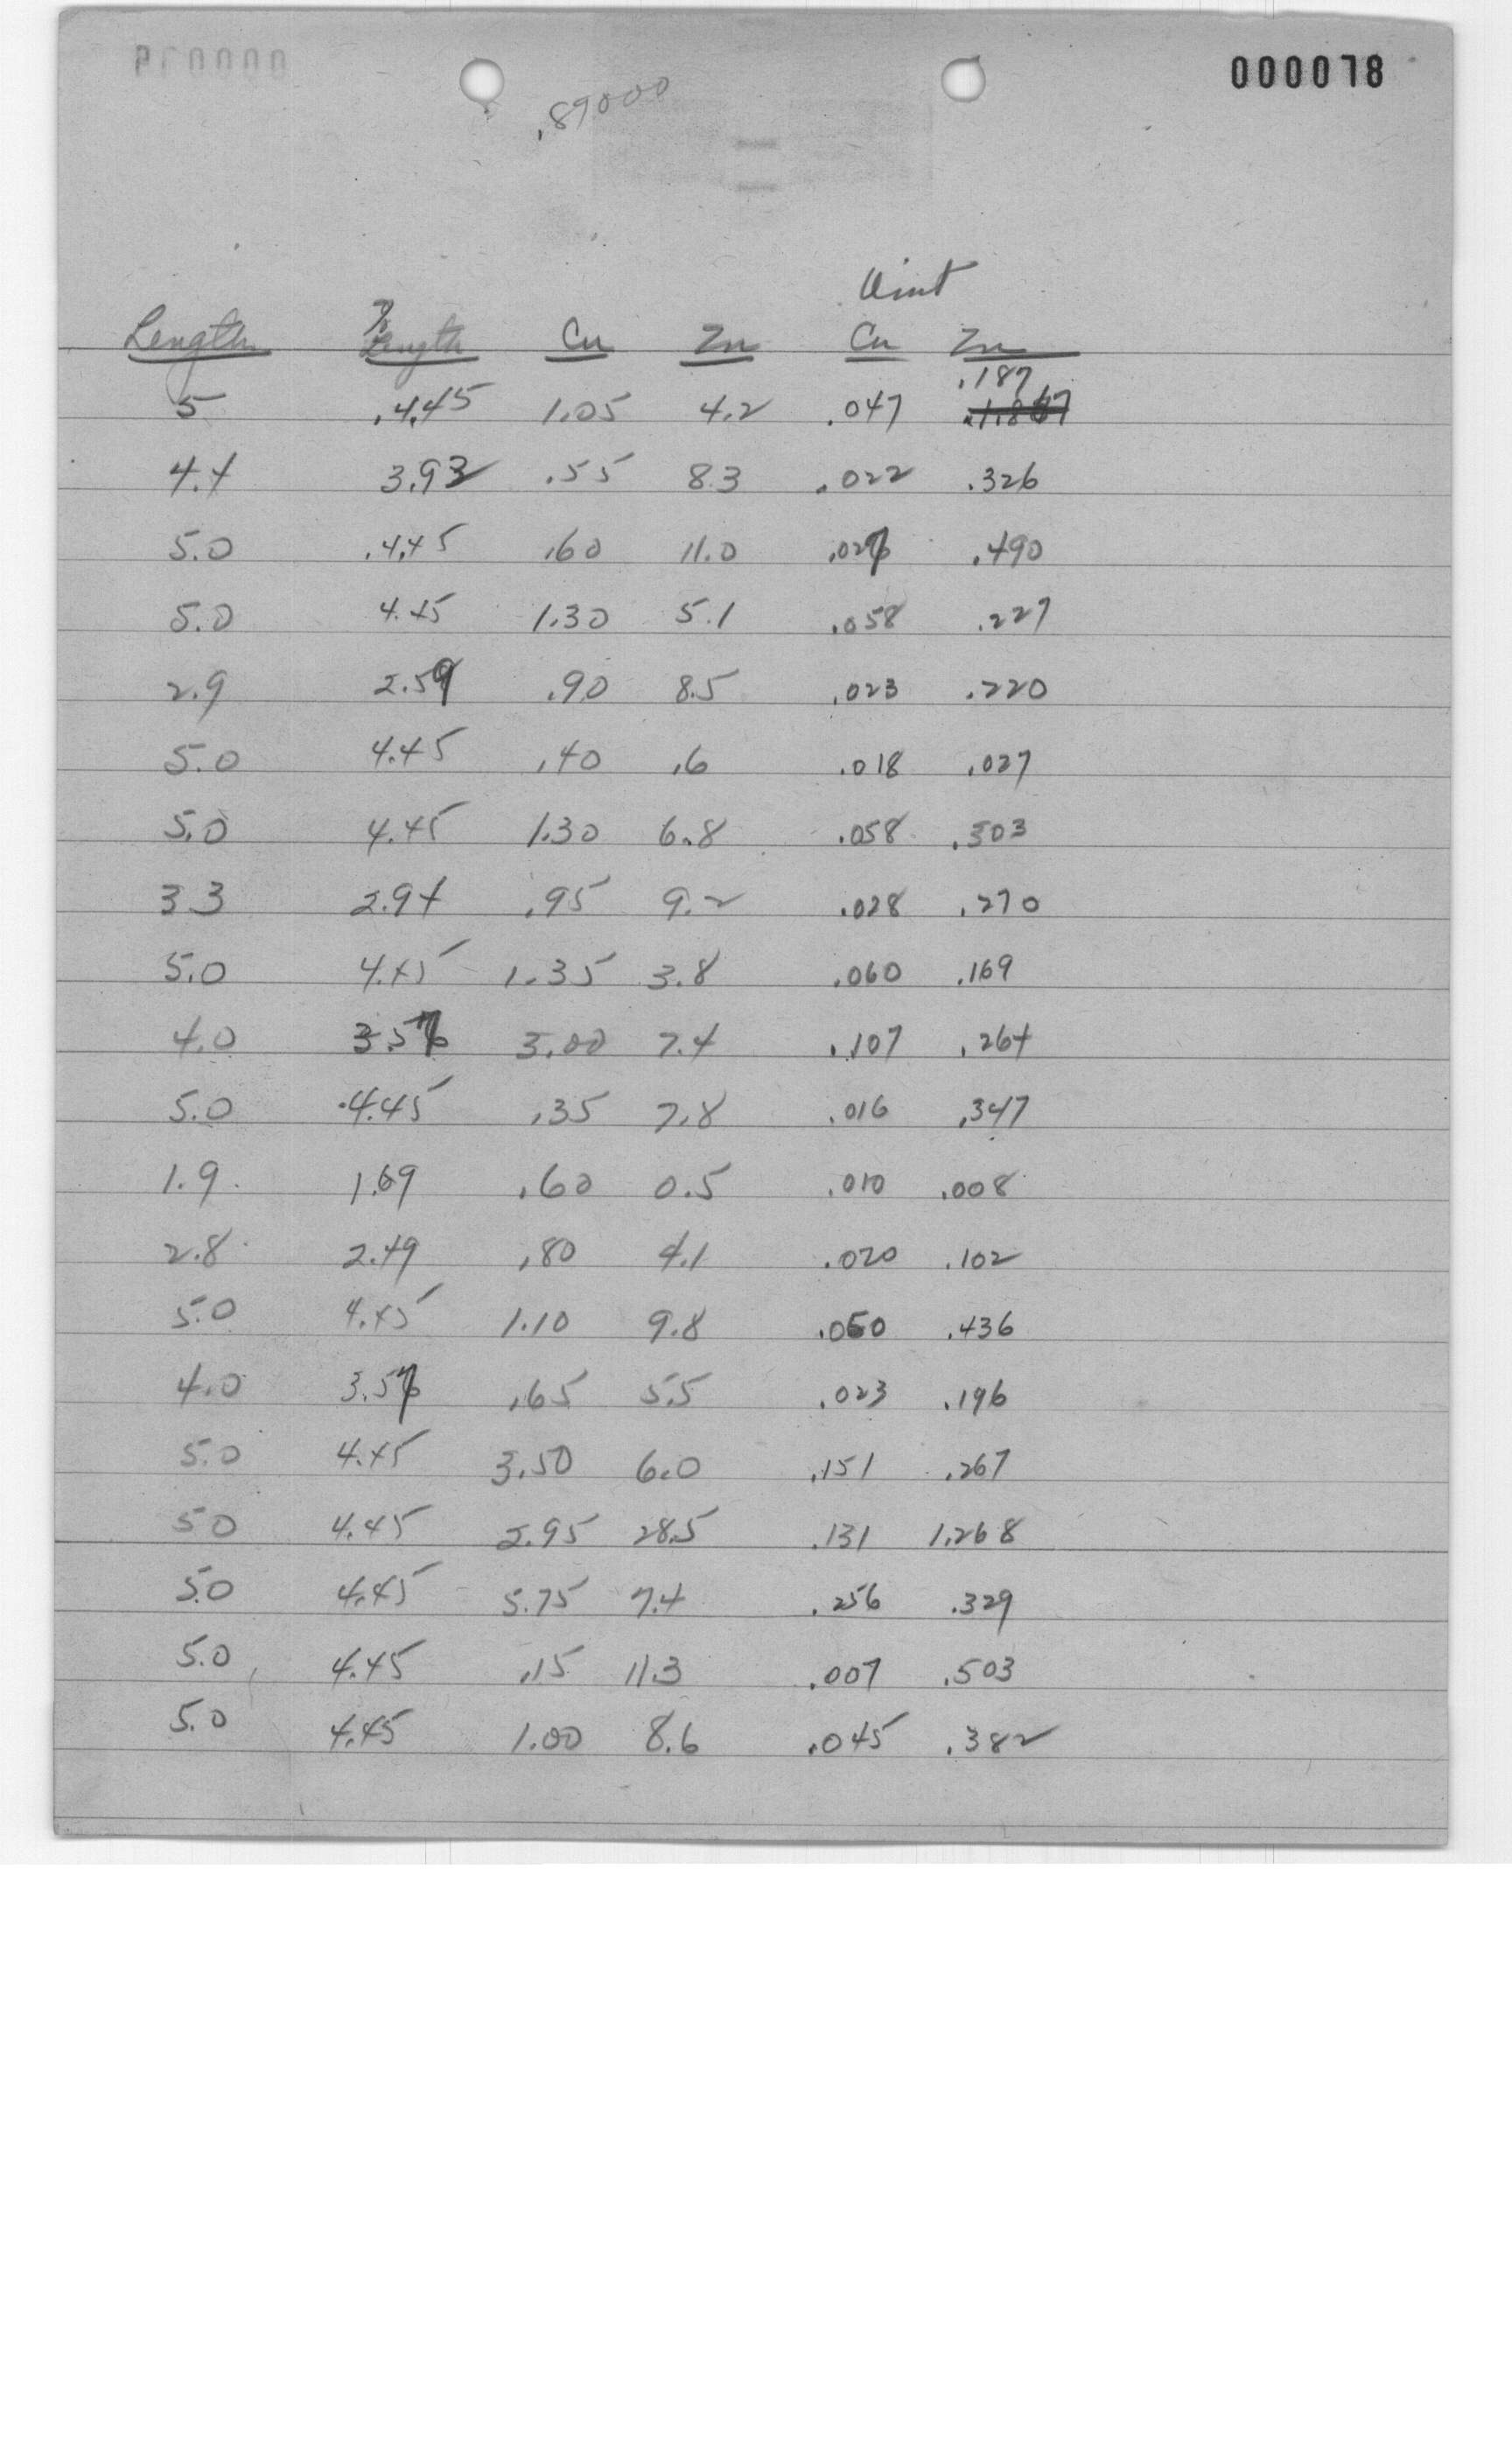 000078
.89000
Unit
Length % Length Cu Zn Cu Zn
.187
5 .4.45 1.05 4.2 .047 .1.867
4.4 3.93 .55 8.3 .022 .326
5.0 .4.45 .60 11.0 .027 .490
5.0 4.45 1.30 5.1 .058 .227
2.9 2.59 .90 8.5 .023 .220
5.0 4.45 .40 .6 .018 .027
5.0 4.45 1.30 6.8 .058 .303
3 3 2.94 .95 9.2 .028 .270
5.0 4.45 1.35 3.8 .060 .169
4.0 3.57 3.00 7.4 .107 .264
5.0 .4.45 .35 7.8 .016 .347
1.9 1.69 .60 0.5 .010 .008
2.8 2.49 .80 4.1 .020 .102
5.0 4.45 1.10 9.8 .050 .436
4.0 3.57 .65 5.5 .023 .196
5.0 4.45 3.50 6.0 .151 .267
50 4.45 2.95 28.5 .131 1.268
5.0 4.45 5.75 7.4 .256 .329
5.0 4.45 .15 11.3 .007 .503
5.0 4.45 1.00 8.6 .045 .382